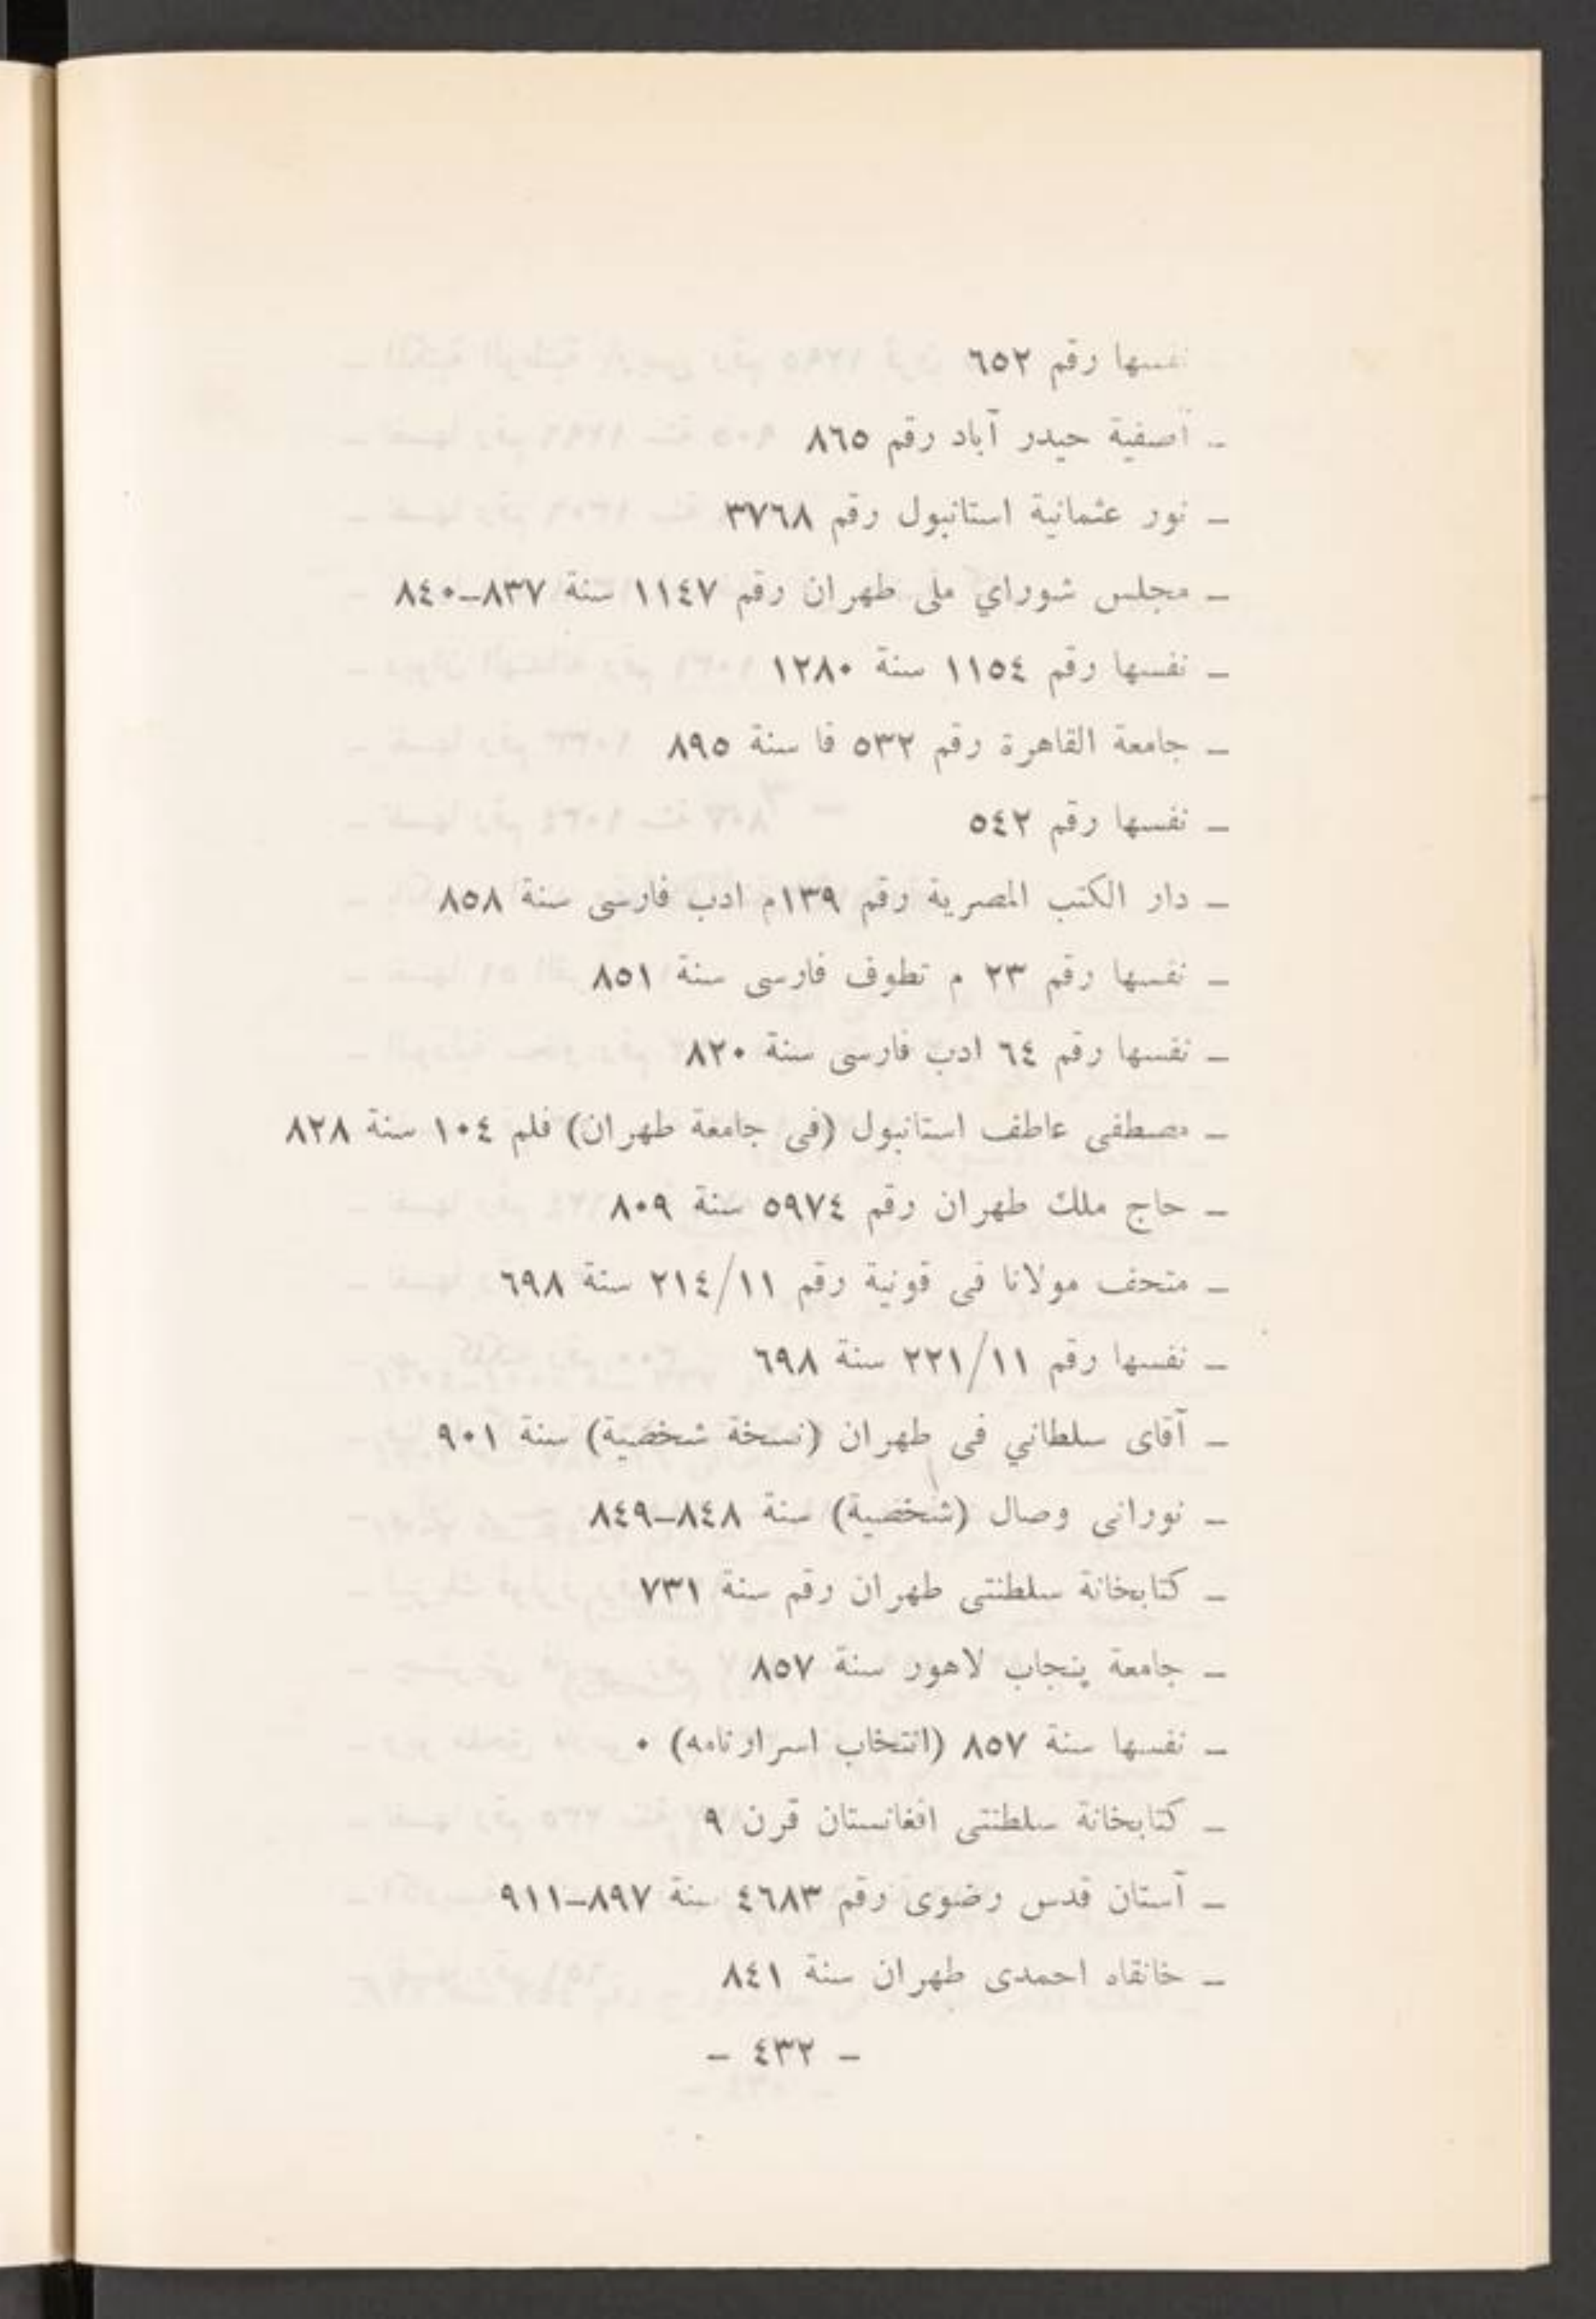 نفسها رقم ٦٥٢
ـ آصفية حيدر آباد رقم ٨٦٥
ـ نور عثمانية استانبول رقم ٣٧٦٨
ـ مجلس شوراي ملى طهران رقم ١١٤٧ سنة ٨٣٧ـ٨٤٠
ـ نفسها رقم ١١٥٤ سنة ١٢٨٠
ـ جامعة القاهرة رقم ٥٣٢ فا سنة ٨٩٥
ـ نفسها رقم ٥٤٢
ـ دار الكتب المصرية رقم ١٣٩م ادب فارسى سنة ٨٥٨
ـ نفسها رقم ٢٣ م تطوف فارسى سنة ٨٥١
ـ نفسها رقم ٦٤ ادب فارسى سنة ٨٢٠
ـ مصطفى عاطف استانبول (فى جامعة طهران) فلم ١٠٤ سنة ٨٢٨
ـ حاج ملك طهران رقم ٥٩٧٤ سنة ٨٠٩
ـ متحف مولانا فى قونية رقم ٢١٤/١١ سنة ٦٩٨
ـ نفسها رقم ٢٢١/١١ سنة ٦٩٨
ـ آقاى سلطاني فى طهران (نسخة شخصية) سنة ٩٠١
ـ نورانى وصال (شخصية) سنة ٨٤٨ـ٨٤٩
ـ كتابخانة سلطنتى طهران رقم سنة ٧٣١
ـ جامعة پنجاب لاهور سنة ٨٥٧
ـ نفسها سنة ٨٥٧ (انتخاب اسرارنامه) ٠
ـ كتابخانة سلطنتى افغانستان قرن ٩
ـ آستان قدس رضوى رقم ٤٦٨٣ سنة ٨٩٧ـ٩١١
ـ خانقاه احمدى طهران سنة ٨٤١
ـ ٤٣٢ ـ